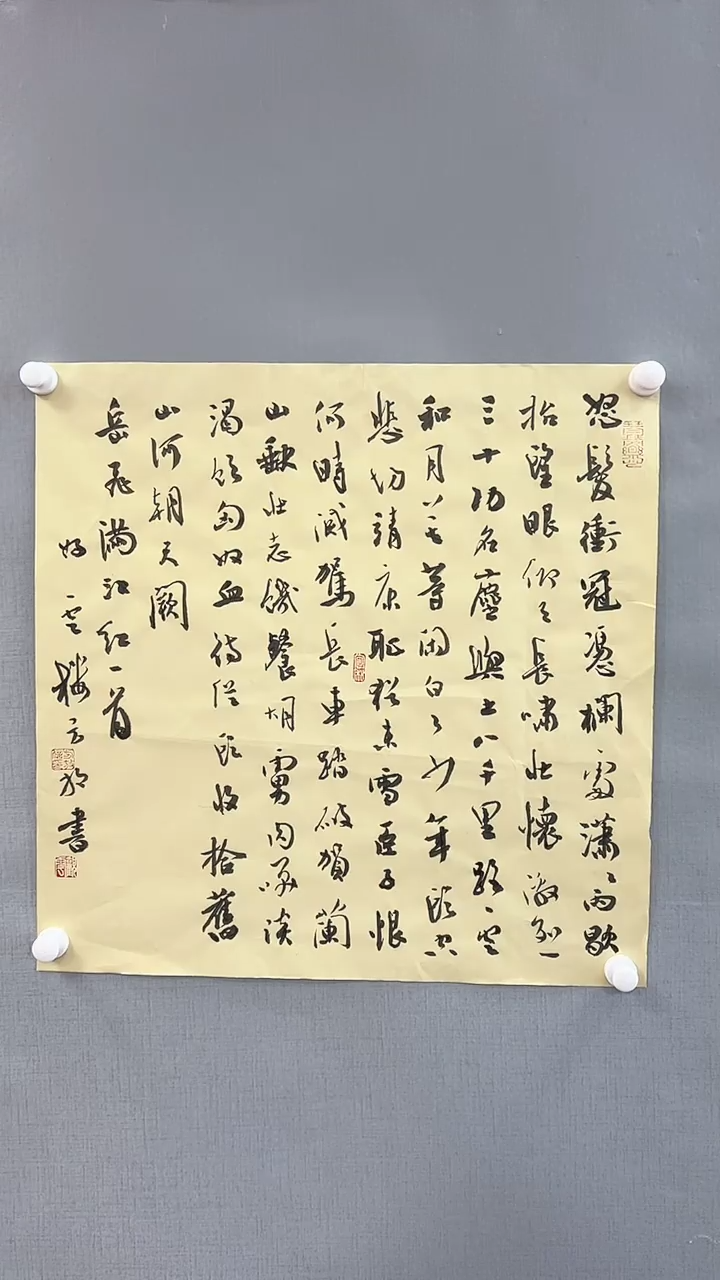 怒髮衝冠憑欄處瀟々雨歇
抬望眼仰天長嘯壯懷激烈
三十功名塵與土八千里路雲
和月莫等閑白了少年頭空
悲切靖康恥猶未雪臣子恨
何時滅駕長車踏破賀蘭
山缺壯志饑餐胡虜肉笑談
渴飲匈奴血待從頭收拾舊
山河朝天闕
岳飛滿江紅一首
好雲樓書